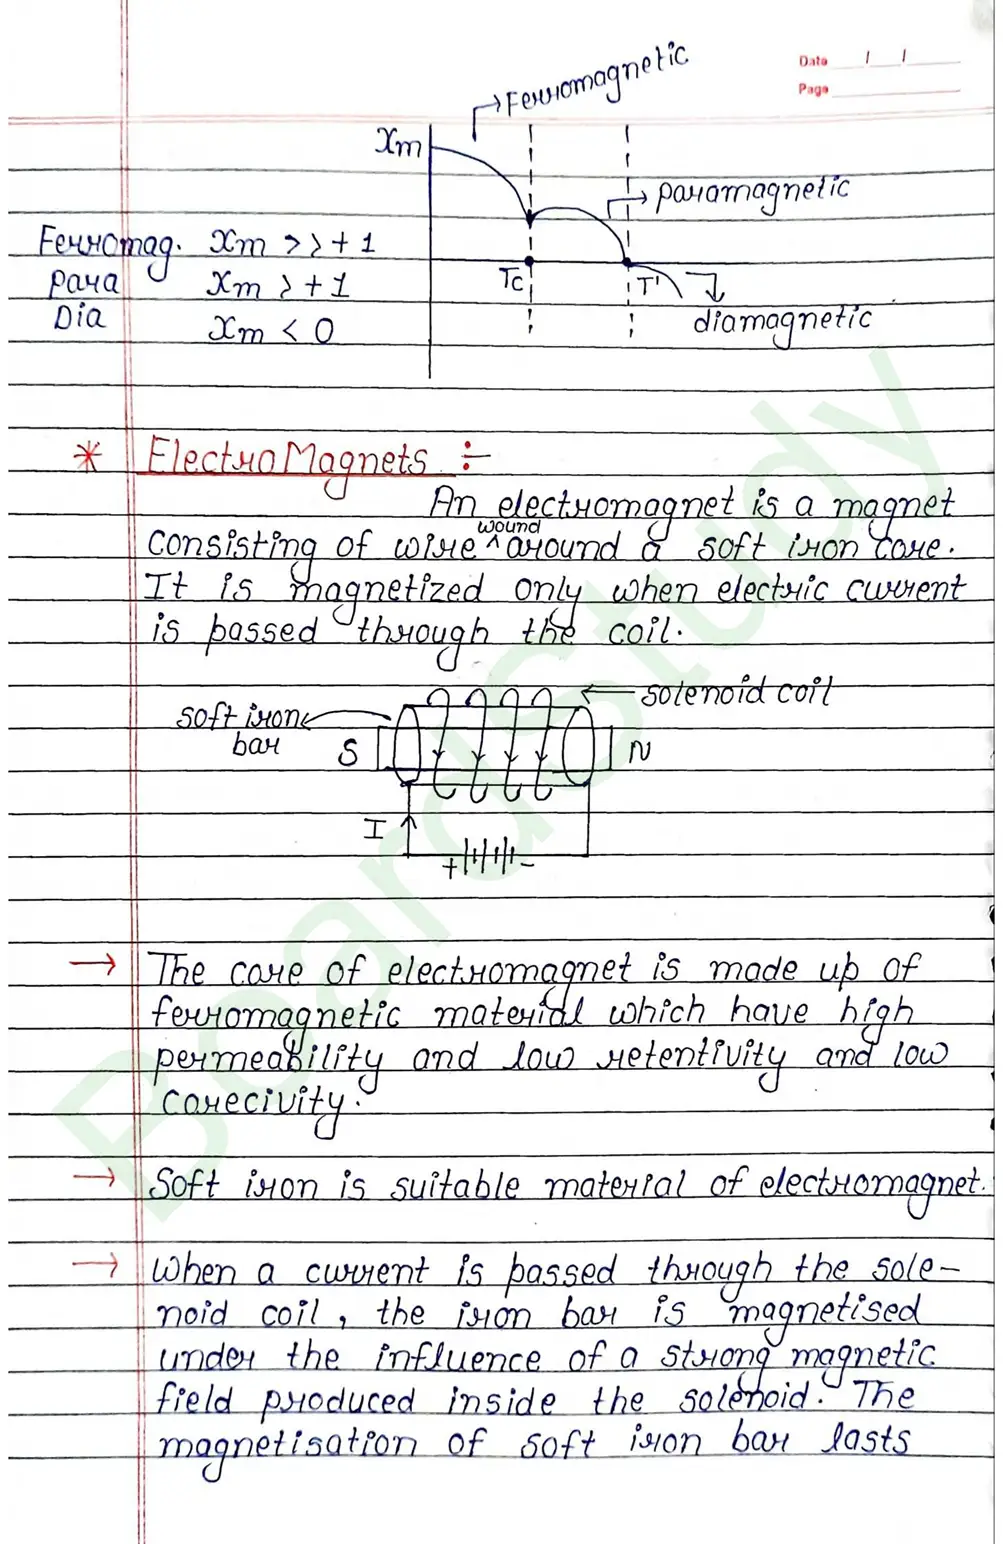 Date / /
Page
→Ferromagnetic
Xm
→paramagnetic
Ferromag. Xm >> +1
Tc T'
para Xm > +1
diamagnetic
Dia Xm < 0
* ElectroMagnets ÷
An electromagnet is a magnet
consisting of wire ^wound around a soft iron core.
It is magnetized only when electric current
is passed through the coil.
← solenoid coil
soft iron
bar
S N
I
+ -
→ The core of electromagnet is made up of
ferromagnetic material which have high
permeability and low retentivity and low
corecivity.
→ Soft iron is suitable material of electromagnet.
→ When a current is passed through the sole-
noid coil, the iron bar is magnetised
under the influence of a strong magnetic
field produced inside the solenoid. The
magnetisation of soft iron bar lasts
BoardStudy